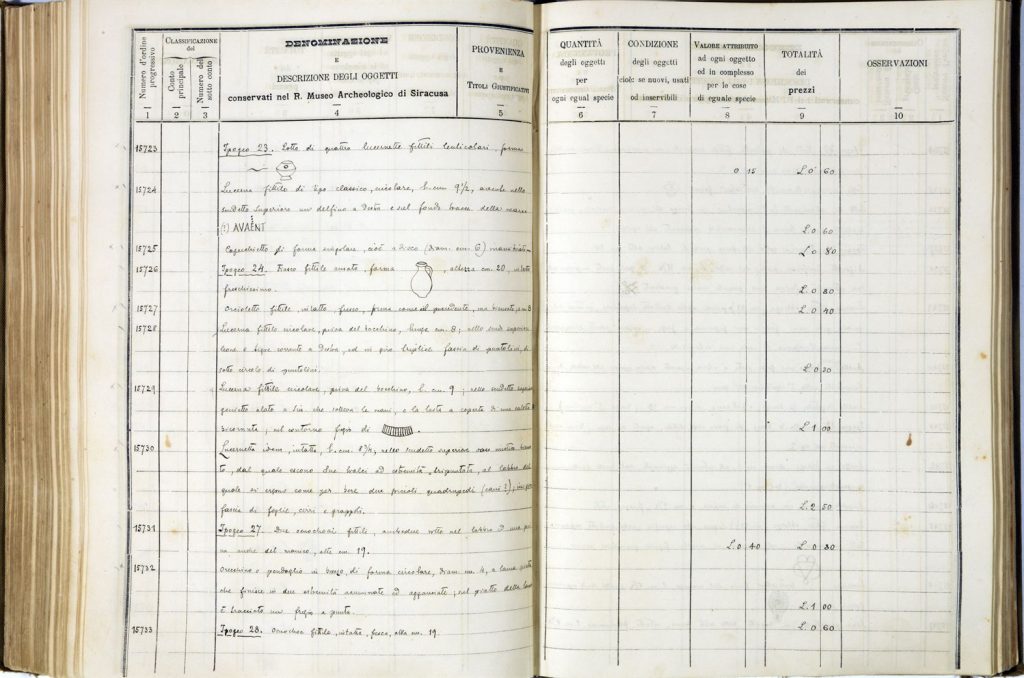 Numero d'ordine progressivo
CLASSIFICAZIONE
del
Conto principale
Numero del sotto conto
DENOMINAZIONE
E
DESCRIZIONE DEGLI OGGETTI
conservati nel R. Museo Archeologico di Siracusa
PROVENIENZA
E
TITOLI GIUSTIFICATIVI
QUANTITÀ
degli oggetti
per
ogni egual specie
CONDIZIONE
degli oggetti
cioè: se nuovi, usati
od inservibili
VALORE ATTRIBUITO
ad ogni oggetto
od in complesso
per le cose
di eguale specie
TOTALITÀ
dei
prezzi
OSSERVAZIONI
1 2 3 4 5 6 7 8 9 10
15723 Ipogeo 23. Lotto di quattro lucernette fittili lenticolari, forma
0 15 L. 0 60
15724 Lucerna fittile di tipo classico, circolare, l. cm. 9 1/2, avente nello
scudetto superiore un delfino a destra e sul fondo la marca
(?) AVAENT
L. 0 60
15725 di forma singolare, cioè a disco (diam. cm. 6)
L. 0 80
15726 Ipogeo 24. Vasco fittile ansato, forma , altezza cm. 20, intatto
freschissimo.
L. 0 80
15727 Orcioletto fittile, intatto, fresco, forma come il precedente, ma
L. 0 40
15728 Lucerna fittile circolare, priva del becchino, lunga cm. 8; nello scud. superiore
leone o tigre corrente a destra, ed in giro triplice fascia di puntolini, di
sotto circolo di puntolini.
15729 Lucerna fittile circolare, priva del becchino, l. cm. 9; nello scudetto
genietto alato a sin. che solleva le mani, e la testa è coperta di una
nel contorno fregio di .
L. 1 00
15730 Lucernetta idem, intatta, l. cm. 8 1/2; nello scudetto superiore vaso
dal quale escono due tralci ad estremità, al labbro del
quale si ergono come per bere due piccoli quadrupedi (cani?);
fascia di foglie, cirri e grappoli.
L. 2 50
15731 Ipogeo 27. Due oenochoai fittili, ambedue rotte nel labbro
anche del manico, alte cm. 19.
L. 0 40 L. 0 80
15732 Orecchino o pendaglio in bronzo, di forma circolare, diam. cm. 4, a
che finisce in due estremità acuminate ed appuntate; nel piatto della
è tracciato un fregio a punta.
L. 1 00
15733 Ipogeo 28. Oinochoe fittile, intatta, fresca, alta cm. 19.
L. 0 60